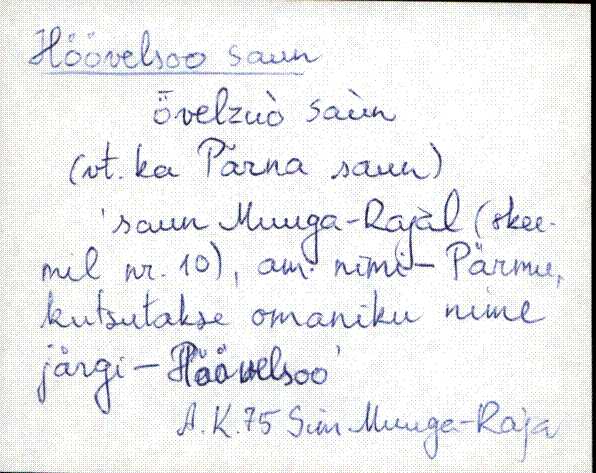 Höövelsoo saun
ȫvelzùo saùn
(vt. ka Pärna saun)
'saun Muuga-Rajal (skee-
mil nr. 10), am. nimi - Pärnu,
kutsutakse omaniku nime
järgi - Höövelsoo'
A.K. 75 Sim Muuga-Raja